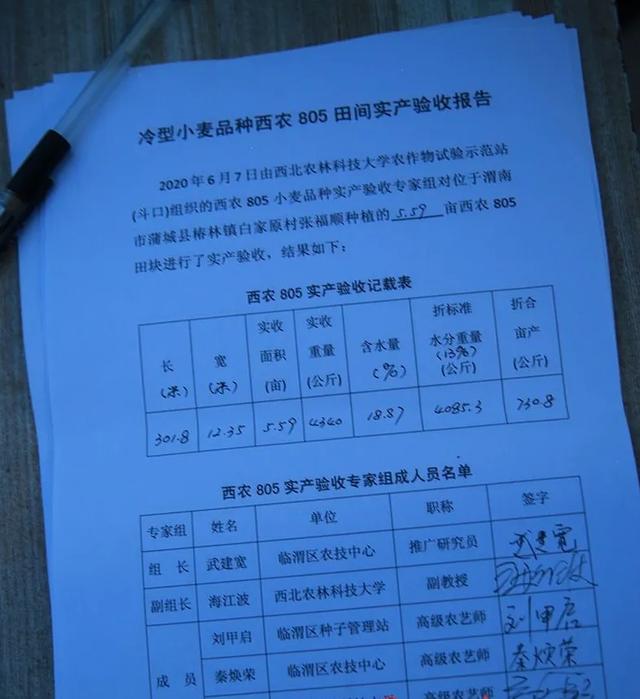 冷型小麦品种西农 805 田间实产验收报告
2020 年 6 月 7 日由西北农林科技大学农作物试验示范站
(斗口)组织的西农 805 小麦品种实产验收专家组对位于渭南
市蒲城县椿林镇白家原村张福顺种植的 5.59 亩西农 805
田块进行了实产验收，结果如下：
西农 805 实产验收记载表
长 (米) 宽 (米) 实收面积 (亩) 实收重量 (公斤) 含水量 (%) 折标准水分重量 (13%) (公斤) 折合亩产 (公斤)
301.8 12.35 5.59 4340 18.87 4085.3 730.8
西农 805 实产验收专家组成人员名单
专家组 姓名 单位 职称 签字
组 长 武建宽 临渭区农技中心 推广研究员 武建宽
副组长 海江波 西北农林科技大学 副教授
刘甲启 临渭区种子管理站 高级农艺师 刘甲启
成 员 秦焕荣 临渭区农技中心 高级农艺师 秦焕荣
高级农艺师